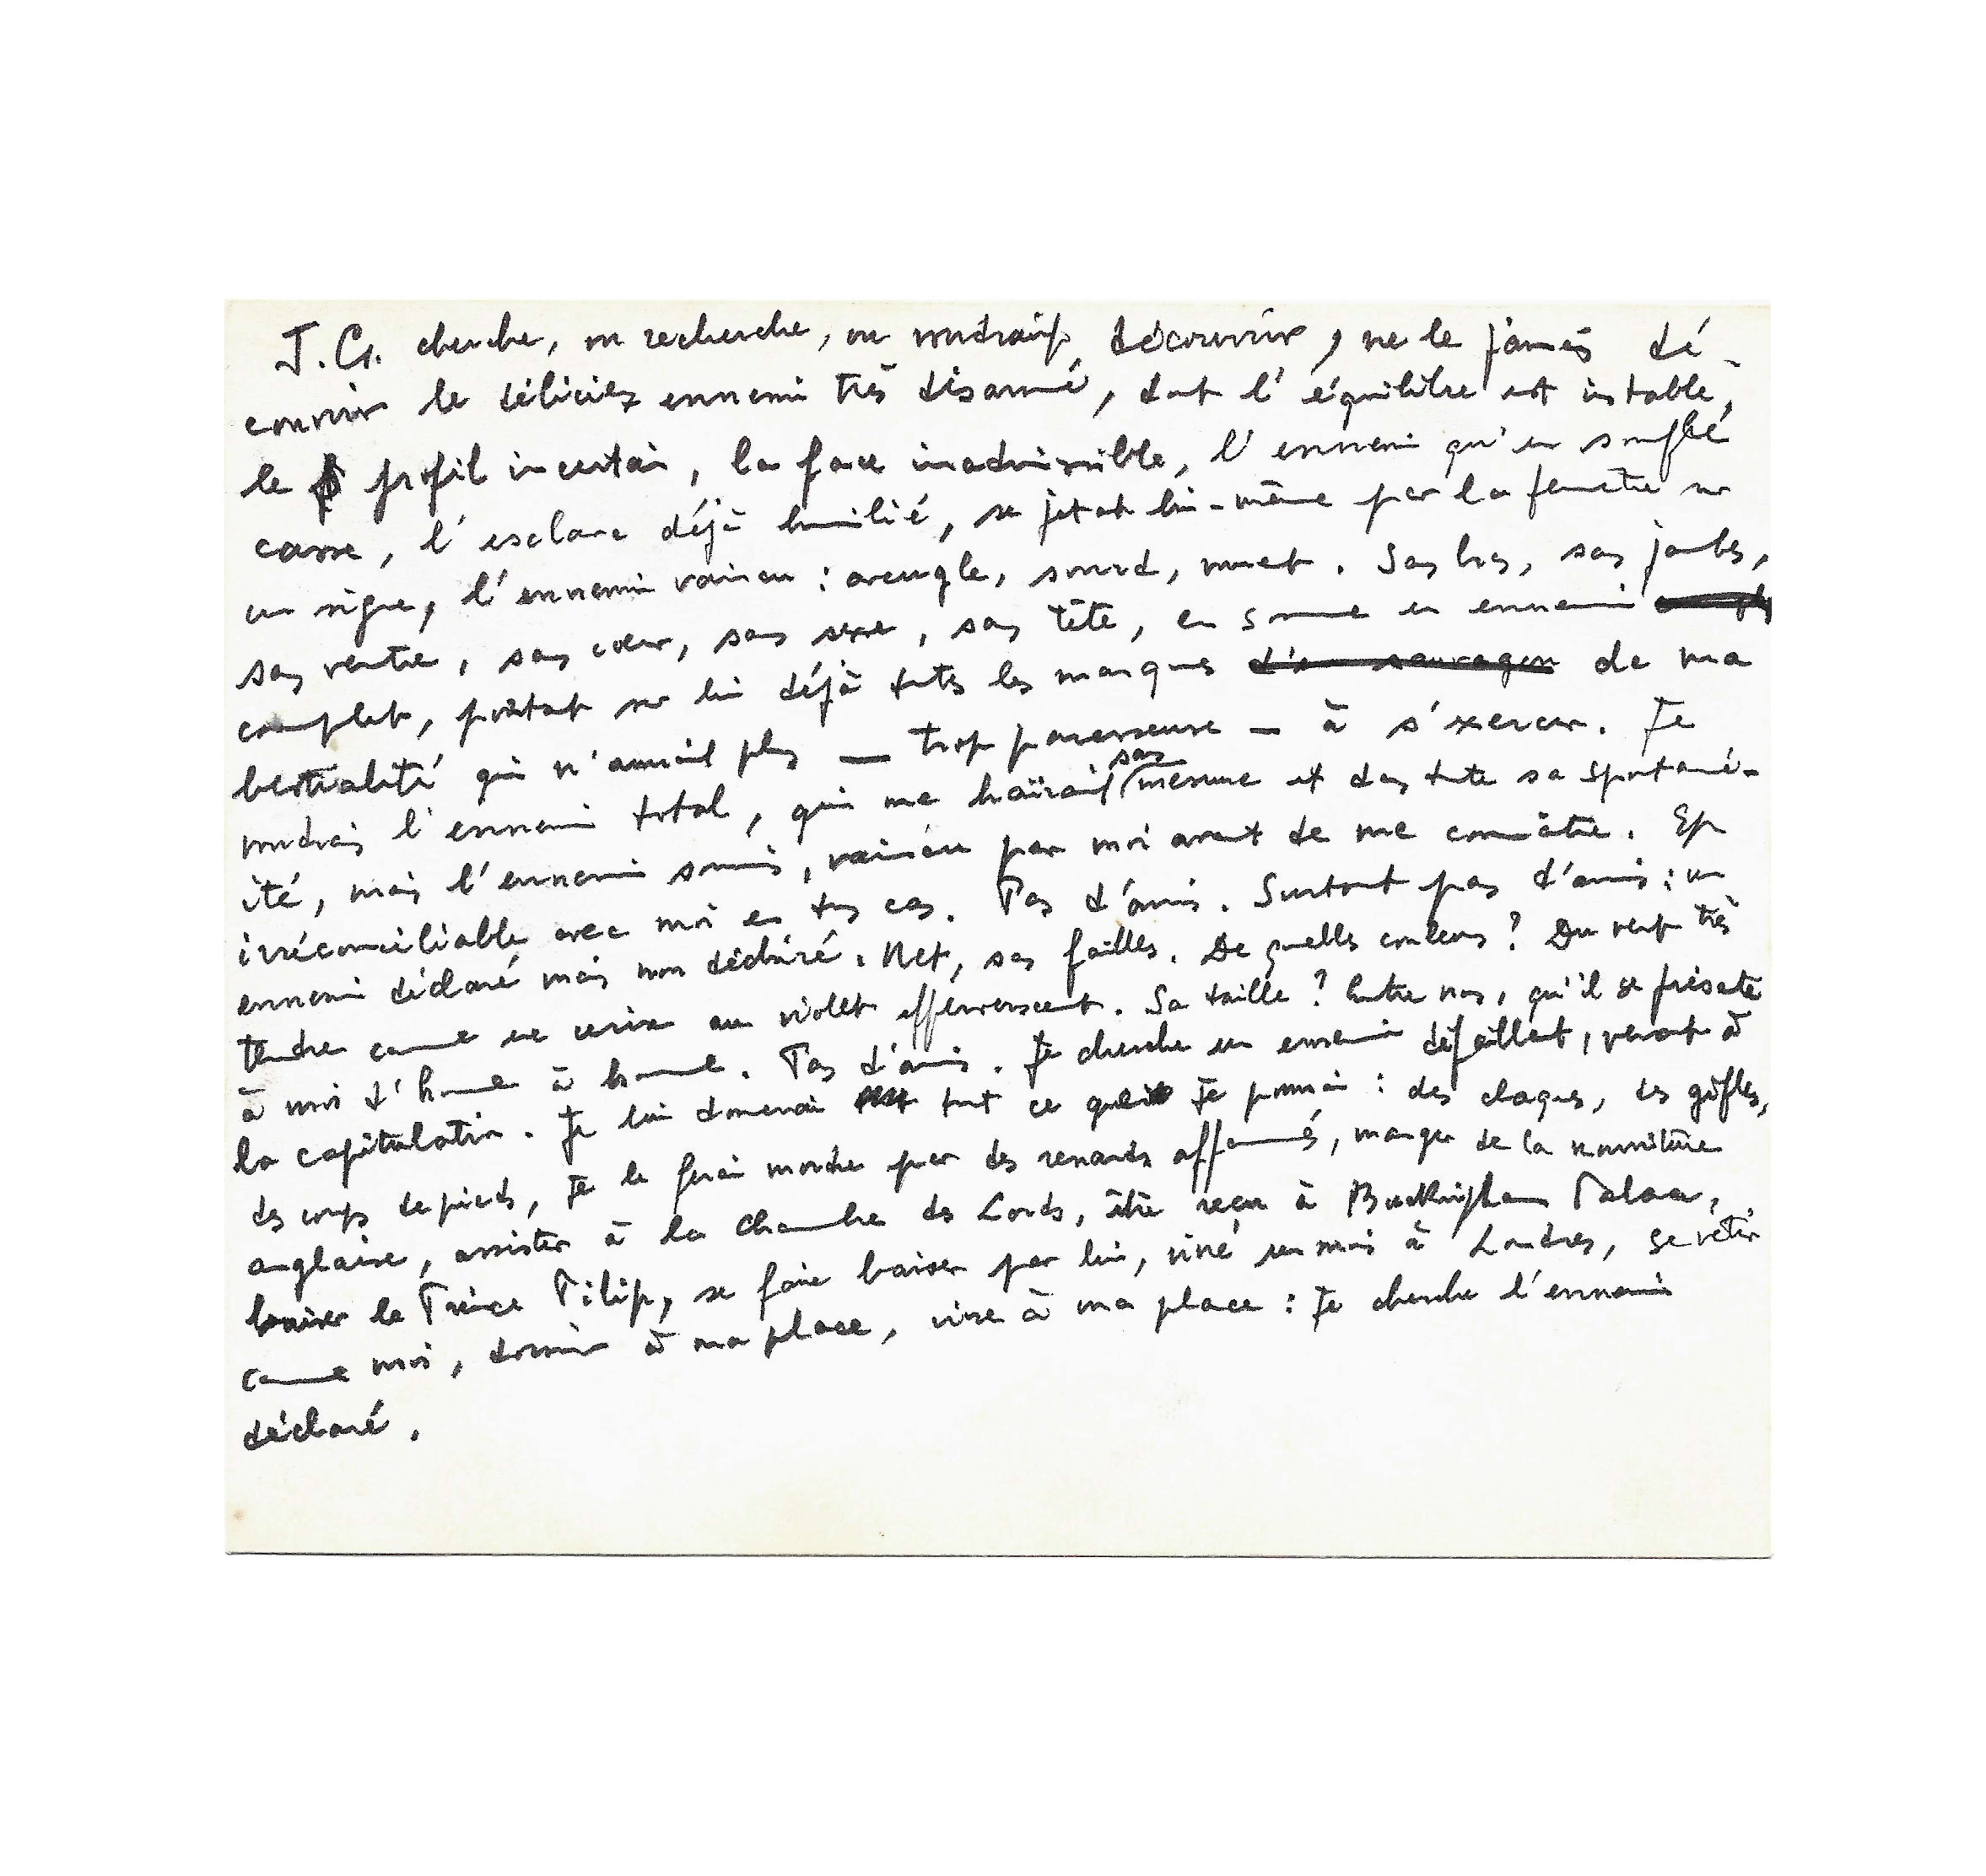 J.G. cherche, ou recherche, ou voudrait découvrir, ne le jamais dé-
couvrir le délicieux ennemi très désarmé, dont l'équilibre est instable,
le profil incertain, la face inadmissible, l'ennemi qu'un souffle
casse, l'esclave déjà humilié, se jetant lui-même par la fenêtre sur
un signe, l'ennemi vaincu : aveugle, sourd, muet. Sans bras, sans jambes,
sans ventre, sans cœur, sans sexe, sans tête, en somme un ennemi
complet, portant sur lui déjà toutes les marques d'un de ma
bestialité qui n'aurait plus — trop paresseuse — à s'exercer. Je
voudrais l'ennemi total, qui me haïrait sans mesure et dans toute sa spontané-
ité, mais l'ennemi soumis, vaincu par moi avant de me connaître. Et
irréconciliable avec moi en tous cas. Pas d'amis. Surtout pas d'amis : un
ennemi déclaré mais non déchiré. Net, sans failles. De quelles couleurs ? Du vert très
tendre comme une cerise au violet effervescent. Sa taille ? Entre nous, qu'il se présente
à moi d'homme à homme. Pas d'amis. Je cherche un ennemi défaillant, venant à
la capitulation. Je lui donnerai tout ce que je pourrai : des claques, des gifles,
des coups de pieds, je le ferai mordre par des renards affamés, manger de la nourriture
anglaise, assister à la Chambre des Lords, être reçu à Buckingham Palace,
baiser le Prince Philip, se faire baiser par lui, vivre un mois à Londres, se vêtir
comme moi, dormir à ma place, vivre à ma place : je cherche l'ennemi
déclaré.